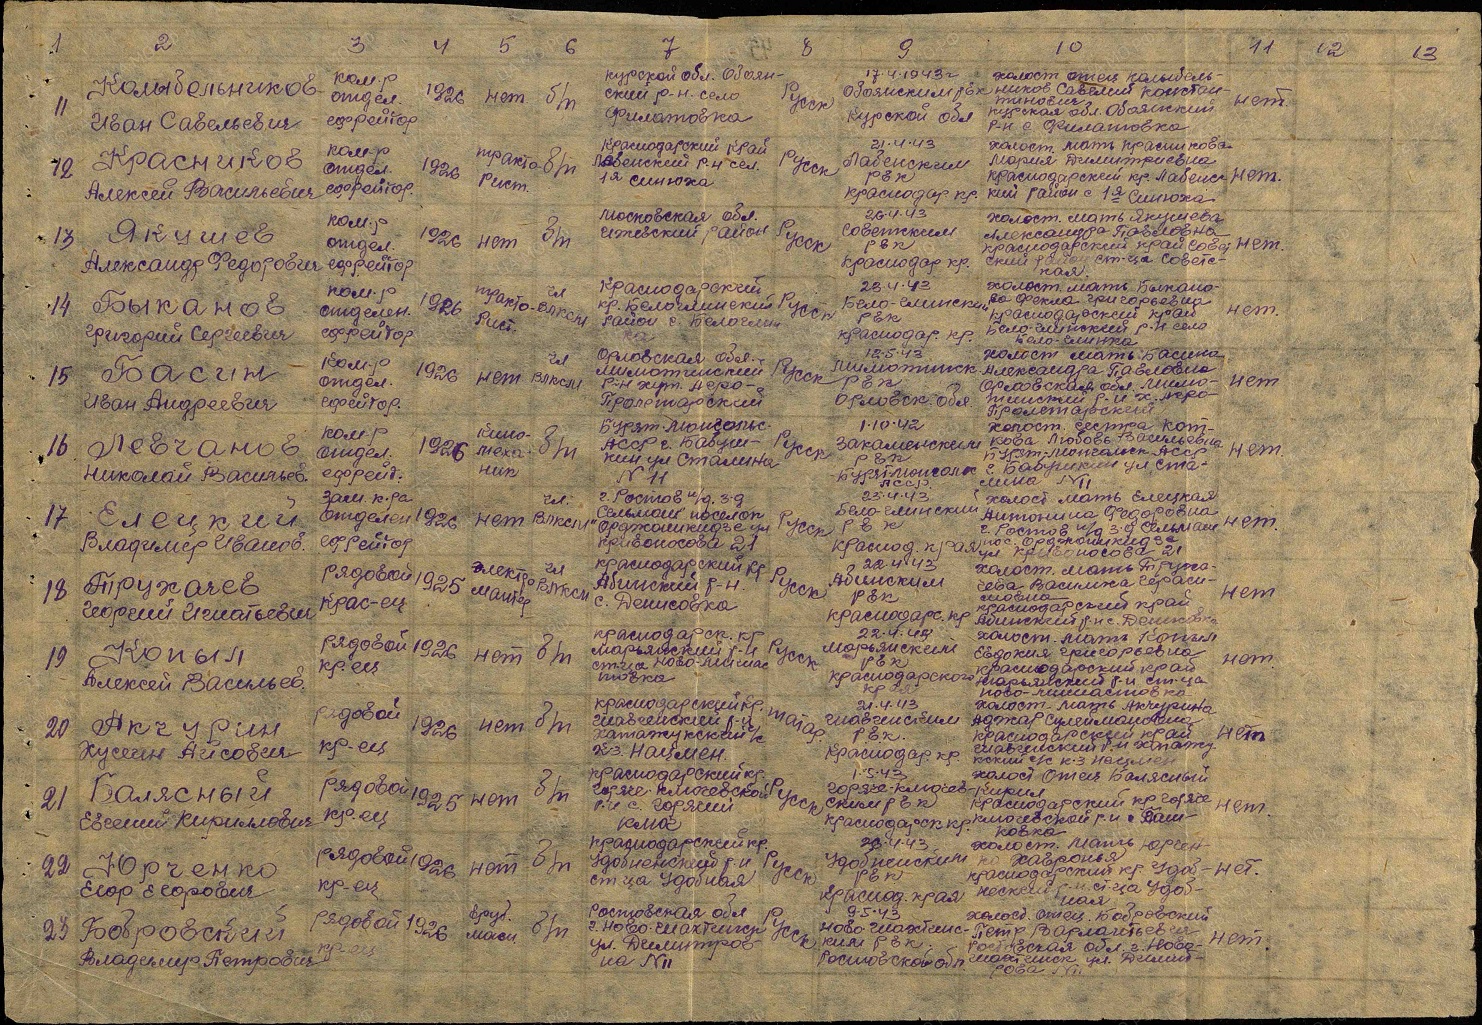 1 2 3 4 5 6 7 8 9 10 11 12 13
11 Колыбельников Иван Савельевич
ком-р отдел. ефрейтор
1926 нет б/п
курской обл. Обоян-
ский р-н село
Филатовка
Русск
17.4.1943 г
Обоянским рвк
Курской обл
холост отец Колыбель-
ников Савелий Констан-
тинович
курская обл. Обоянский
р-н с Филатовка
нет.
12 Красников Алексей Васильевич
ком-р отдел. ефрейтор.
1926 тракто-
рист. б/п
Краснодарский край
Лабенский р-н сел.
1я синюха
Русск
21.4.43
Лабенским
рвк
краснодар кр.
холост. мать Красникова
Мария Димитриевна
краснодарский кр. Лабенс-
кий район с 1я Синюха
нет.
13 Якушев Александр Федорович
ком-р отдел. ефрейтор
1926 нет б/п
московская обл.
район
Русск
26.4.43
Советским
рвк
Краснодар кр.
холост. мать Якушева
Александра Павловна
краснодарский край Сове
ский район ст-ца Советс-
кая.
нет.
14 Быканов Григорий Сергеевич
ком-р отделен. ефрейтор
1926 тракто-
рист. чл ВЛКСМ
Краснодарский
кр. Белоглинский
район с. Белоглин
ка
Русск
23.4.43
Бело-глинским
рвк
краснодар. кр.
холост. мать Быкано-
ва Фекла григорьевна
Краснодарский край
Бело-глинский р-н село
Бело-глинка
нет.
15 Басин Иван Андреевич
ком-р отдел. ефрейтор.
1926 нет чл ВЛКСМ
Орловская обл.
р-н хут. Аеро-
Пролетарский
Русск
12.5.43
рвк
Орловск. обл
холост мать Басина
Александра Павловна
Орловская обл.
р-н х. Аеро-
Пролетарский
нет
16 Левчанов Николай Васильев.
ком-р отдел. ефрейт.
1926 кино-
меха-
ник б/п
Бурят-Монгольс.
АССР г. Бабуш-
кин ул Сталина
N 11
Русск
1.10.42
Закаменским
рвк
Бурят-монгольс
АССР
холост. сестра Кот-
кова Любовь Васильевна
Бурят-монгольск АССР
г. Бабушкин ул Ста-
лина N11
нет.
17 Елецкий Владимир Иванов.
зам. к-ра отделен ефрейтор
1926 нет чл. ВЛКСМ
г. Ростов н/д. з-д
Сельмаш поселок
Орджоникидзе ул
Кривоносова 21
Русск
23.4.43
Бело-глинский
рвк
краснод. края
холост мать Елецкая
Антонина Федоровна
г. Ростов н/д з-д Сельмаш
пос. Орджоникидзе
ул кривоносова 21
нет.
18 Трухачев Георгий Игнатьевич
рядовой Крас-ец
1925 электро
монтер чл ВЛКСМ
Краснодарский кр
Абинский р-н.
с. Денисовка
Русск
22.4.43
Абинским
рвк
Краснодарс. кр
холост. мать Труха-
чева Василиса Гераси-
мовна
краснодарский край
Абинский р-н с. Денисовка
нет
19 Копыл Алексей Васильев.
рядовой кр-ец
1926 нет б/п
краснодарск. кр
марьянский р-н
ст-ца Ново-мышас
товка
Русск
22.4.43
марьянским
рвк
краснодарского
края
холост. мать Копыл
Евдокия григорьевна
краснодарский край
марьянский р-н ст-ца
ново-мышастовка
нет.
20 Акчурин Хусеин Айсович
рядовой кр-ец
1926 нет б/п
краснодарский кр.
гиагенский р-н
хатажукский
к-з. Нацмен.
татар.
21.4.43
гиагенским
рвк.
краснодар. кр.
холост. мать Акчурина
Аджар Сулеймановна
краснодарский край
гиагенский р-н хатажу
кский с/с к-з Нацмен
нет
21 Балясный Евгений Кириллович
рядовой кр-ец
1925 нет б/п
краснодарский кр.
горяче-ключевской
р-н с. Горячий
ключ
Русск
1.5.43
горяче-ключев-
ским рвк
краснодарск кр.
холост Отец Балясный
Кирил
краснодарский кр горяче
ключевской р-н с
нет.
22 Юрченко Егор Егорович
рядовой кр-ец
1926 нет б/п
краснодарский кр.
Удобненский р-н
ст-ца Удобная
Русск
23.4.43
Удобненским
рвк
краснод. края
холост. мать Юрчен-
ко Хавронья
краснодарский кр Удоб-
ненский р-н ст-ца Удоб-
ная
нет.
23 Бобровский Владимир Петрович
рядовой кр-ец
1926 б/п
Ростовская обл
г. Ново-шахтинск
ул. Димитров-
на N11
Русск
9.5.43
ново шахтинс-
ким рвк.
Ростовской обл
холост. Отец. Бобровский
Петр Варлатьевич
Ростовская обл. г. Ново-
шахтинск ул. Димит-
рова N11
нет.